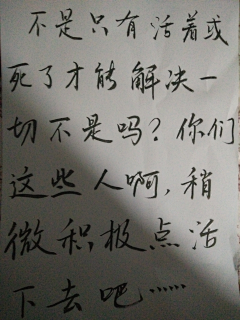 不是只有活着或
死了才能解决一
切不是吗？你们
这些人啊，稍
微积极点活
下去吧……